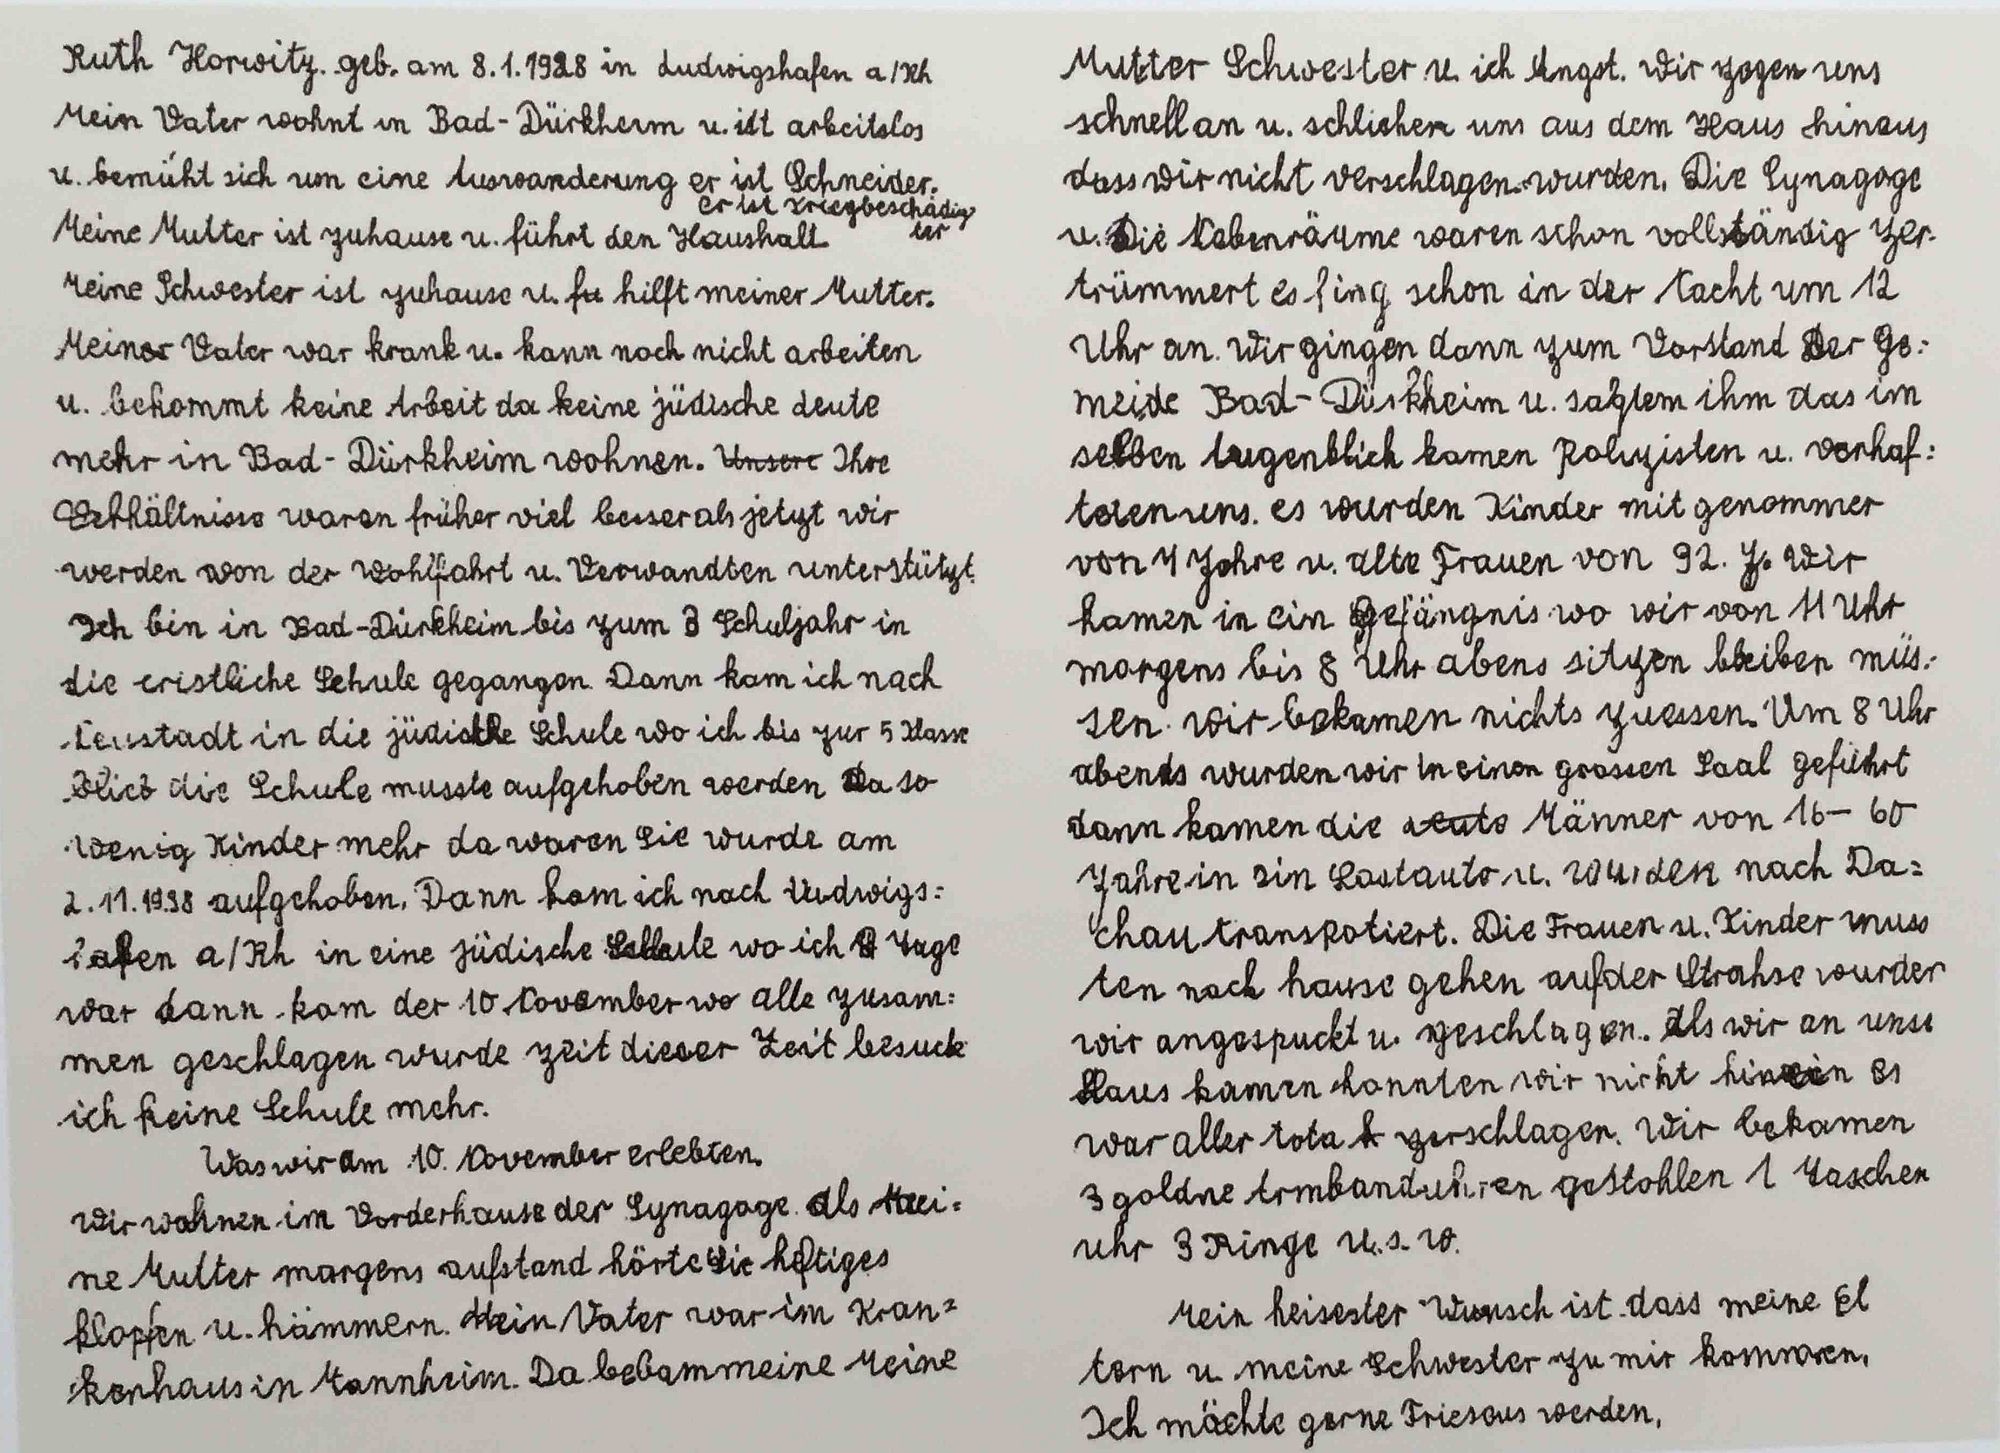 Ruth Horwitz. geb. am 8.1.1928 in Ludwigshafen a/Rh
Mein Vater wohnt in Bad-Dürkheim u. ist arbeitslos
u. bemüht sich um eine Auswanderung er ist Schneider.
er ist Kriegbeschädig
ter
Meine Mutter ist zuhause u. führt den Haushalt
Meine Schwester ist zuhause u. fu hilft meiner Mutter.
Meiner Vater war krank u. kann noch nicht arbeiten
u. bekommt keine Arbeit da keine jüdische Leute
mehr in Bad-Dürkheim wohnen. Unsere Ihre
Verhältnisse waren früher viel besser als jetzt wir
werden von der Wohlfahrt u. Verwandten unterstützt.
Ich bin in Bad-Dürkheim bis zum 3 Schuljahr in
die cristliche Schule gegangen. Dann kam ich nach
Neustadt in die jüdische Schule wo ich bis zur 5 Klasse
blieb die Schule musste aufgehoben werden Da so
wenig Kinder mehr da waren Sie wurde am
2.11.1938 aufgehoben. Dann kam ich nach Ludwigs:
hafen a/Rh in eine jüdische Schule wo ich 8 Tage
war dann kam der 10. November wo alle zusam:
men geschlagen wurde zeit dieser Zeit besuck
ich keine Schule mehr.
Was wir am 10. November erlebten.
Wir wohnen im Vorderhause der Synagoge. Als Mei:
ne Mutter morgens aufstand hörte Sie heftiges
klopfen u. hämmern. Mein Vater war im Kran=
kenhaus in Mannheim. Da bebam meine Meine
Mutter Schwester u. ich Angst. Wir zogen uns
schnell an u. schlichen uns aus dem Haus hinaus
dass wir nicht verschlagen wurden. Die Synagoge
u. Die Nebenräume waren schon vollständig zer-
trümmert es fing schon in der Nacht um 12
Uhr an. Wir gingen dann zum Vorstand Der Ge:
meide Bad-Dürkheim u. sagtem ihm das im
selben Augenblich kamen Polizisten u. verhaf:
teten uns. es wurden Kinder mit genommer
von 4 Jahre u. alte Frauen von 92. J. Wir
kamen in ein Gefängnis wo wir von 11 Uhr
morgens bis 8 Uhr abens sitzen bleiben müs:
sen. Wir bekamen nichts zuessen. Um 8 Uhr
abends wurden wir in einen grossen Saal geführt
dann kamen die Leute Männer von 16-60
Jahre in ein Lastauto u. wurden nach Da=
chau transpotiert. Die Frauen u. Kinder muss
ten nach hause gehen auf der Strahse wurden
wir angespuckt u. geschlagen. Als wir an unse
Haus kamen konnten wir nicht hinein es
war aller total zerschlagen. Wir bekamen
3 goldne Armbanduhren gestohlen 1 Taschen
uhr 3 Ringe u.s.w.
Mein heisester Wunsch ist dass meine El
tern u. meine Schwester zu mir kommen.
Ich möchte gerne Frieseus werden.